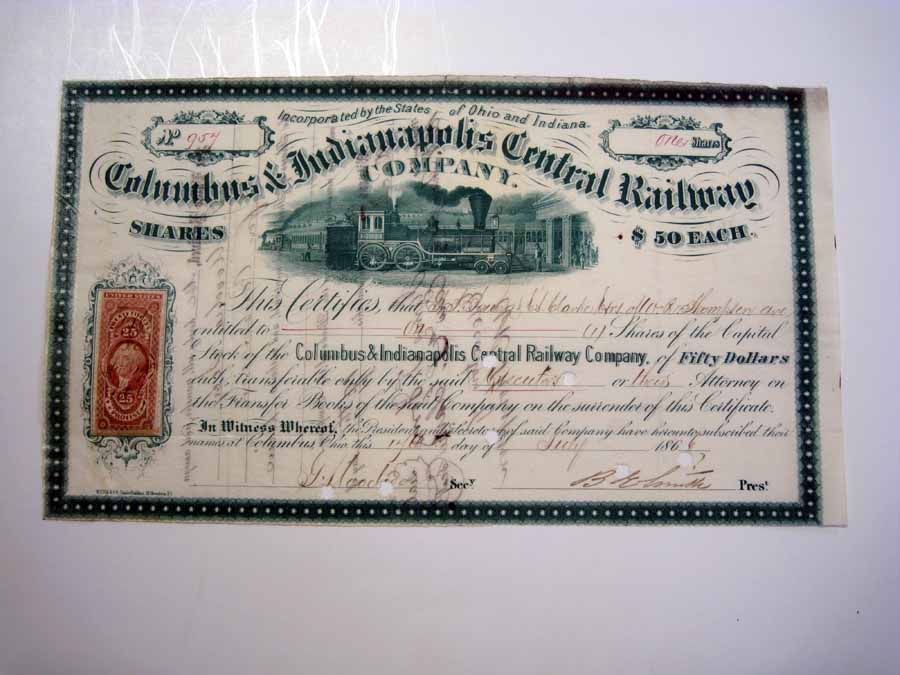 Incorporated by the States of Ohio and Indiana.
No 954
One Shares
Columbus & Indianapolis Central Railway
COMPANY.
SHARES
$ 50 EACH.
This Certifies, that Clarke Thompson are
entitled to One (1) Shares of the Capital
Stock of the Columbus & Indianapolis Central Railway Company, of Fifty Dollars
each, transferable only by the said Executors or their Attorney on
the Transfer Books of the said Company on the surrender of this Certificate.
In Witness Whereof, the President and Secretary of said Company have hereunto subscribed their
names at Columbus Ohio this day of July 1866
Secy
B E Smith Prest
UNITED STATES
25
25